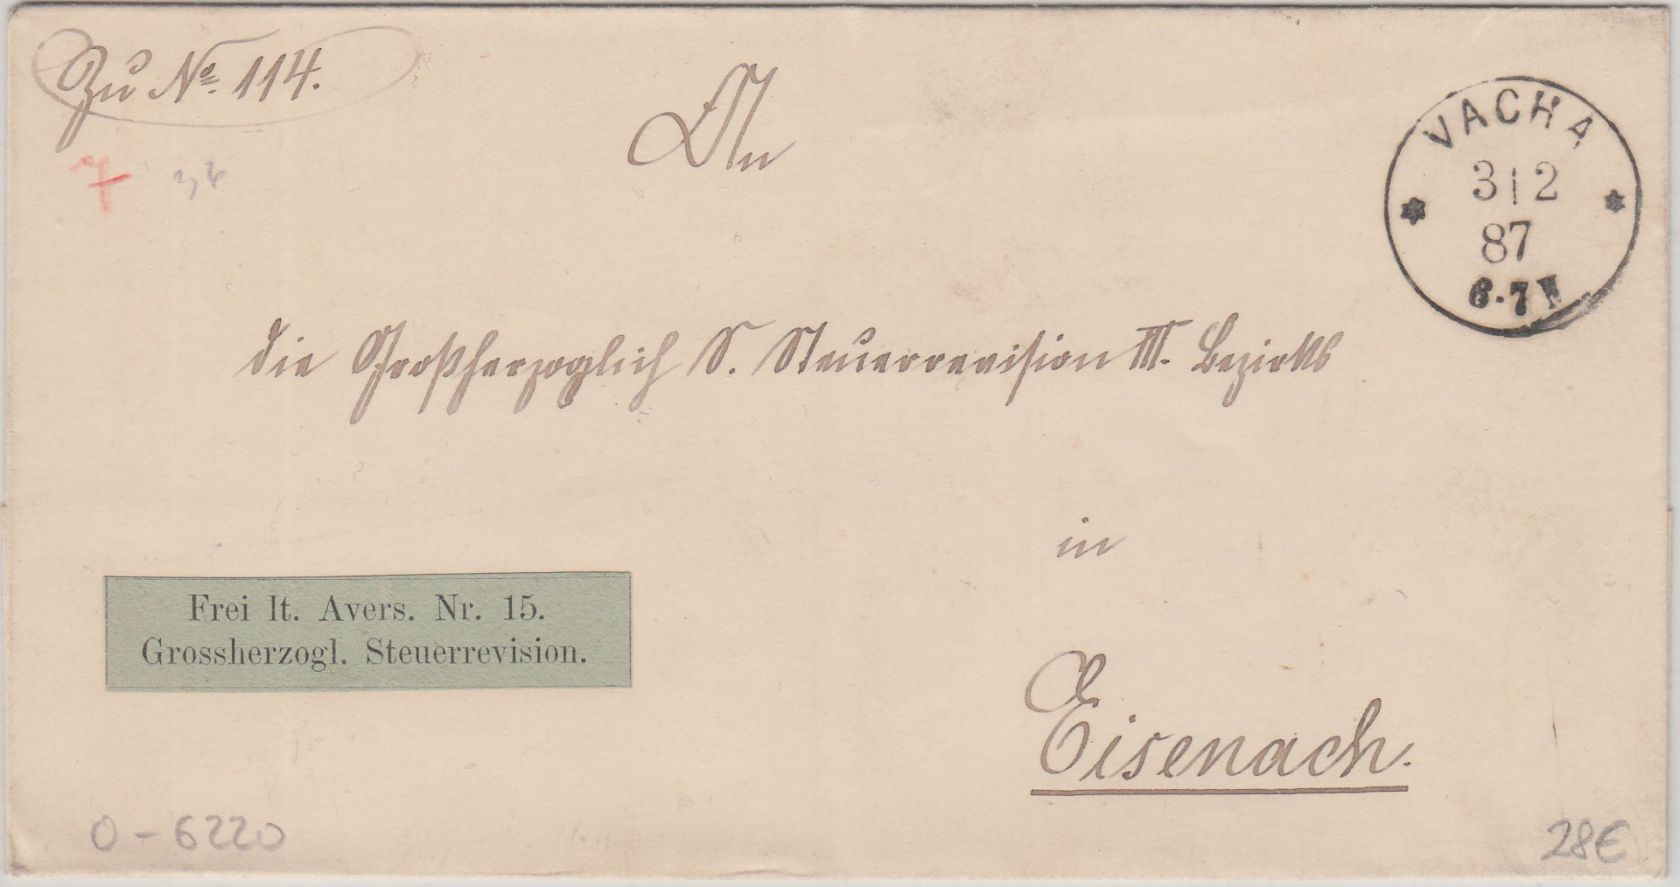 Zu No. 114.
An
VACHA
3 | 2
87
6-7 N
die Großherzoglich S. Steuerrevision III. Bezirks
in
Frei lt. Avers. Nr. 15.
Grossherzogl. Steuerrevision.
Eisenach.
O - 6220
28€